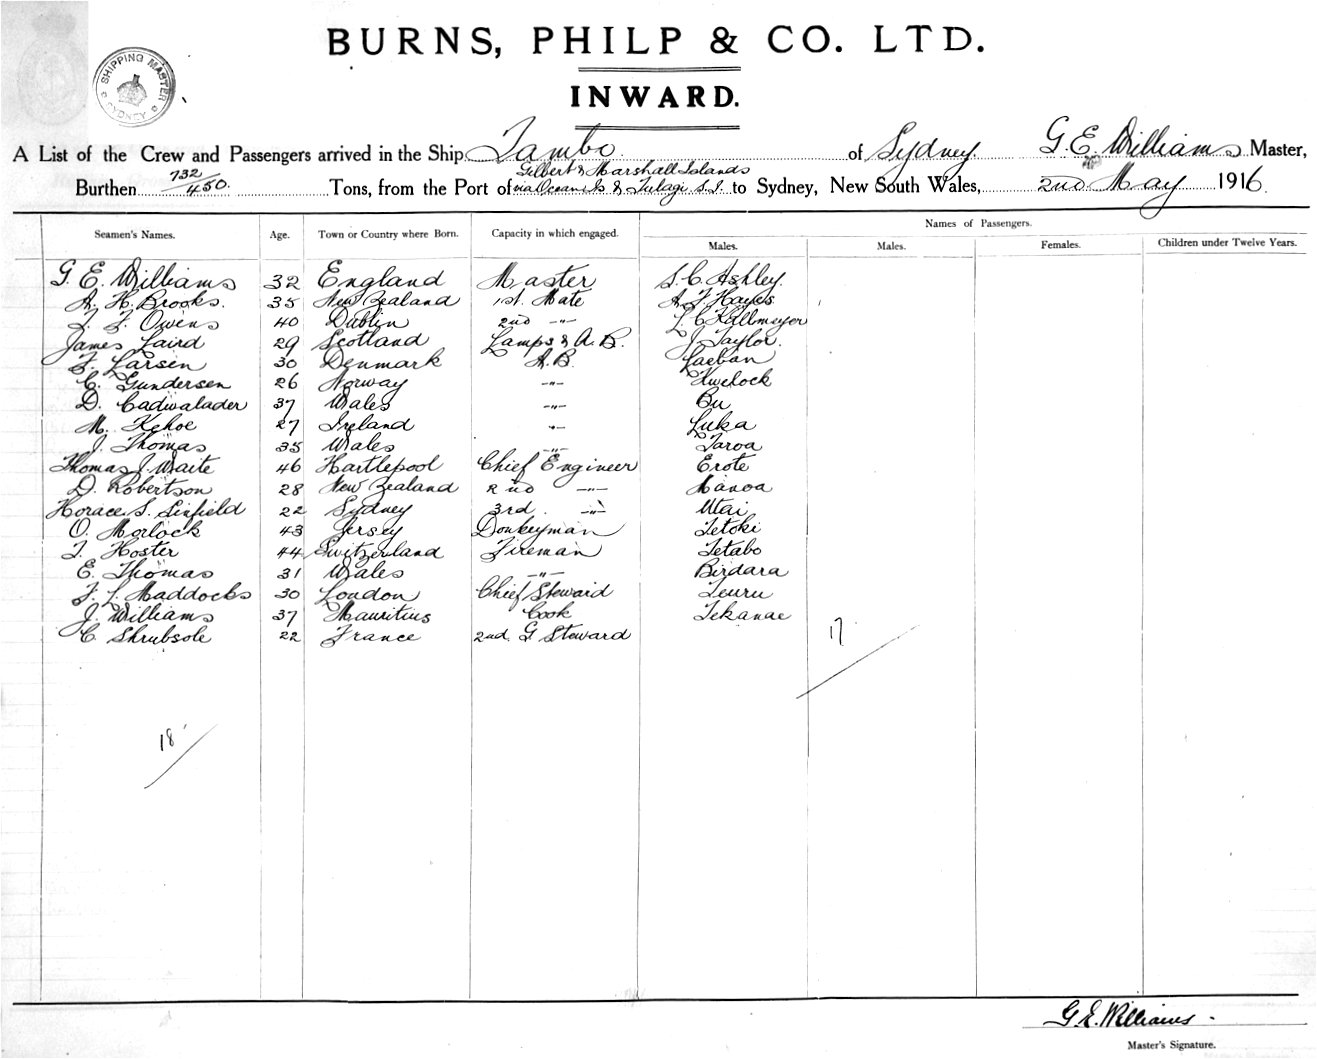 BURNS, PHILP & CO. LTD.
INWARD.
SHIPPING MASTER SYDNEY
A List of the Crew and Passengers arrived in the Ship Tambo of Sydney G. E. Williams Master,
Gilbert & Marshall Islands
Burthen 732/450. Tons, from the Port of via Ocean Is & Tulagi S.I. to Sydney, New South Wales, 2nd May 1916
Names of Passengers.
Seamen's Names. Age. Town or Country where Born. Capacity in which engaged. Males. Males. Females. Children under Twelve Years.
G. E. Williams 32 England Master S. C. Ashley.
A. H. Brooks. 35 New Zealand 1st. Mate A. F. Hayes
F. F. Owens 40 Dublin 2nd -"- L. C. Kellmeyer
James Laird 29 Scotland Lamps & A. B. J. Taylor.
F. Larsen 30 Denmark A. B. Laeban
C. Gundersen 26 Norway -"- Kwelock
D. Cadwalader 37 Wales -"- Bu
M. Kehoe 27 Ireland -"- Luka
J. Thomas 35 Wales -"- Taroa
Thomas J. Waite 46 Hartlepool Chief Engineer Erote
D. Robertson 28 New Zealand 2nd -"- Manoa
Horace S. Sinfield 22 Sydney 3rd. -"- Utai
O. Morlock 43 Jersey Donkeyman Tetoki
T. Hoster 44 Switzerland Fireman Tetabo
E. Thomas 31 Wales -"- Birdara
F. L. Maddocks 30 London Chief Steward Teuru
J. Williams 37 Mauritius Cook Tekanae
C. Shrubsole 22 France 2nd. G Steward
17
18
G. E. Williams
Master's Signature.